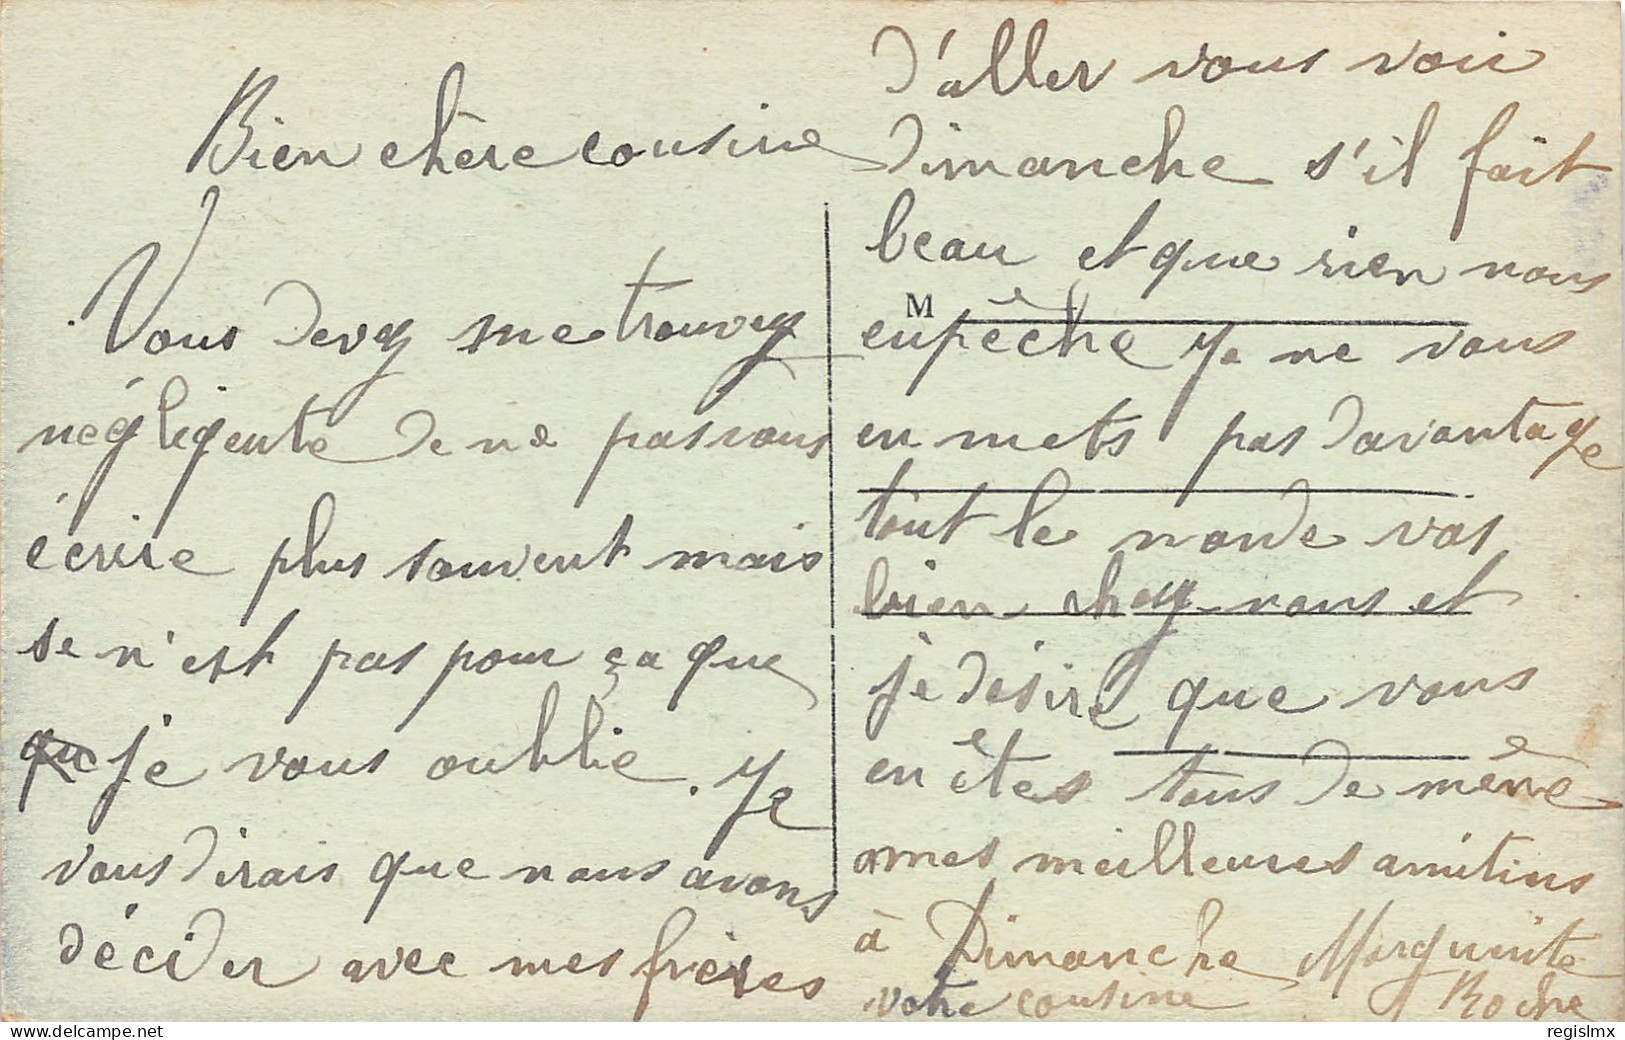 Bien chère cousine
Vous devez me trouvez
négligente de ne pas vous
écrire plus souvent mais
se n'est pas pour ça que
que je vous oublie. Je
vous dirais que nous avons
décider avec mes frères
d'aller vous voir
dimanche s'il fait
beau et que rien nous
M
enpêche je ne vous
en mets pas davantage
tout le monde vas
bien chez nous et
je désire que vous
en êtes tous de même
mes meilleures amitius
à Dimanche Marguerite
votre cousine Roche
delcampe.net
regislmx